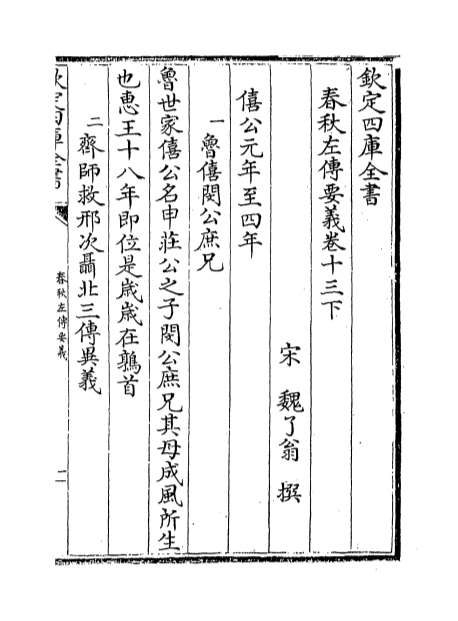 欽定四庫全書
春秋左傳要義卷十三下
宋 魏了翁 撰
僖公元年至四年
一魯僖閔公庶兄
魯世家僖公名申莊公之子閔公庶兄其母成風所生
也惠王十八年即位是歲歲在鶉首
二齊師救邢次聶北三傳異義
欽定四庫全書
春秋左傳要義
二